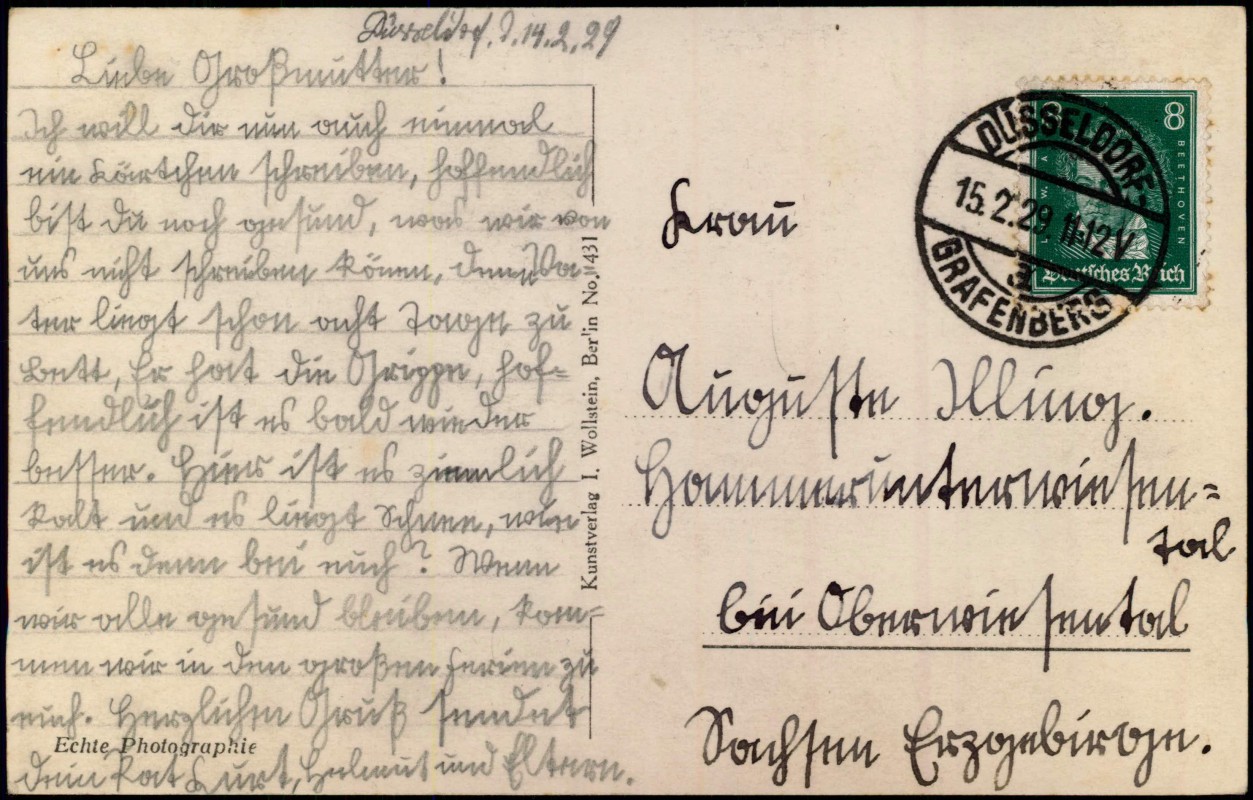 Düsseldorf, d. 14.2.29
Liebe Großmutter!
Ich will dir nun auch einmal
ein Kärtchen schreiben, hoffendlich
bist du noch gesund, was wir von
uns nicht schreiben könen, denn Va=
ter liegt schon acht Tage zu
Bett, Er hat die Grippe, hof=
fendlich ist es bald wieder
besser. Hier ist es ziemlich
kalt und es liegt Schnee, wie
ist es denn bei euch? Wenn
wir alle gesund bleiben, kom=
men wir in den großen Ferien zu
euch. Herzlichen Gruß sendet
Echte Photographie
dein Kurt, Helmut und Eltern.
Kunstverlag I. Wollstein, Berlin No. 431
8 8
BEETHOVEN
Deutsches Reich
DÜSSELDORF-
15.2.29. 11-12 V
a
GRAFENBERG
Frau
Auguste Illing.
Hammerunterwiesen=
tal
bei Oberwiesental
Sachsen Erzgebirge.